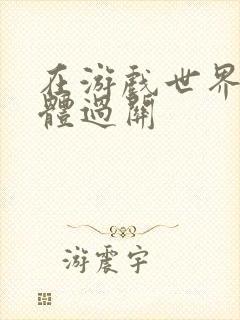 在游戏世界
體過關
游震宇